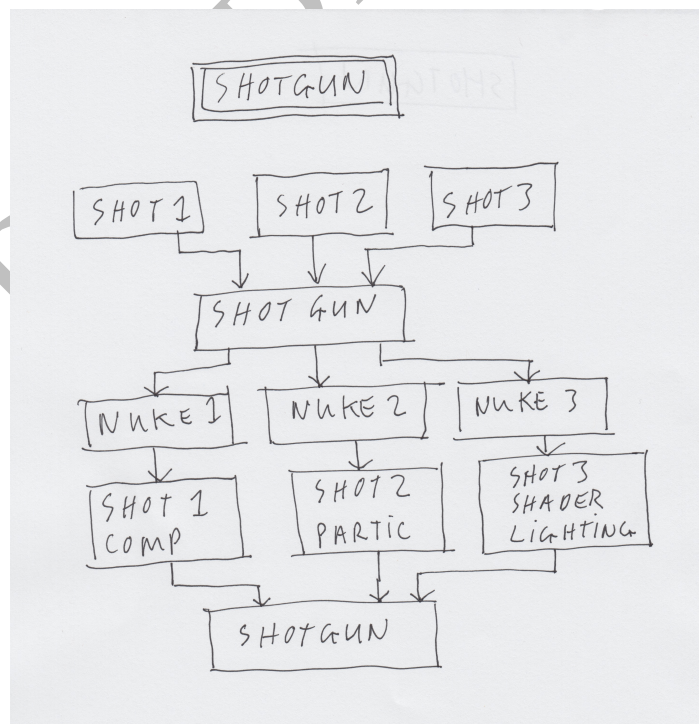 SHOTGUN
SHOT 1
SHOT 2
SHOT 3
SHOT GUN
NUKE 1
NUKE 2
NUKE 3
SHOT 1
COMP
SHOT 2
PARTIC
SHOT 3
SHADER
LIGHTING
SHOTGUN